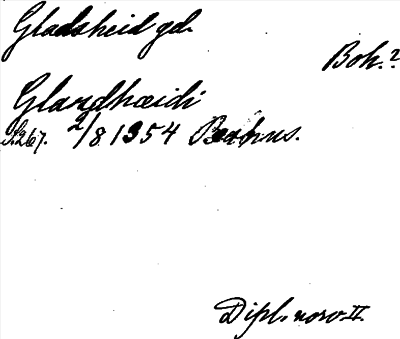 Gladsheid gd.
Boh.?
Glandhæidi
S. 267. 2/8 1354 Baahus.
Dipl. norv. II.